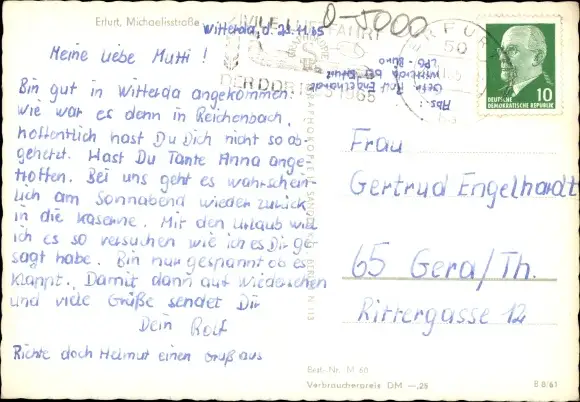 Erfurt, Michaelisstraße
Witterda, d. 23.11.65
Meine liebe Mutti!
Bin gut in Witterda angekommen.
Wie war es denn in Reichenbach,
hoffentlich hast Du Dich nicht so ab-
gehetzt. Hast Du Tante Anna ange-
troffen. Bei uns geht es wahrschein
lich am Sonnabend wieder zurück
in die Kaserne. Mit den Urlaub will
ich es so versuchen wie ich es Dir ge-
sagt habe. Bin nur gespannt ob es
klappt. Damit dann auf Wiedersehen
und viele Grüße sendet Dir
Dein Rolf
Richte doch Helmut einen Gruß aus
0-5000
ERFURT
50
DER DDR 1965
Abs.:
Gefr. Rolf Engelhardt
Witterda bei Erfurt
LPG - Büro
DEUTSCHE
DEMOKRATISCHE REPUBLIK
10
Frau
Gertrud Engelhardt
65 Gera/Th.
Rittergasse 12
Best.-Nr. M 60
Verbraucherpreis DM —,25
B 8/61